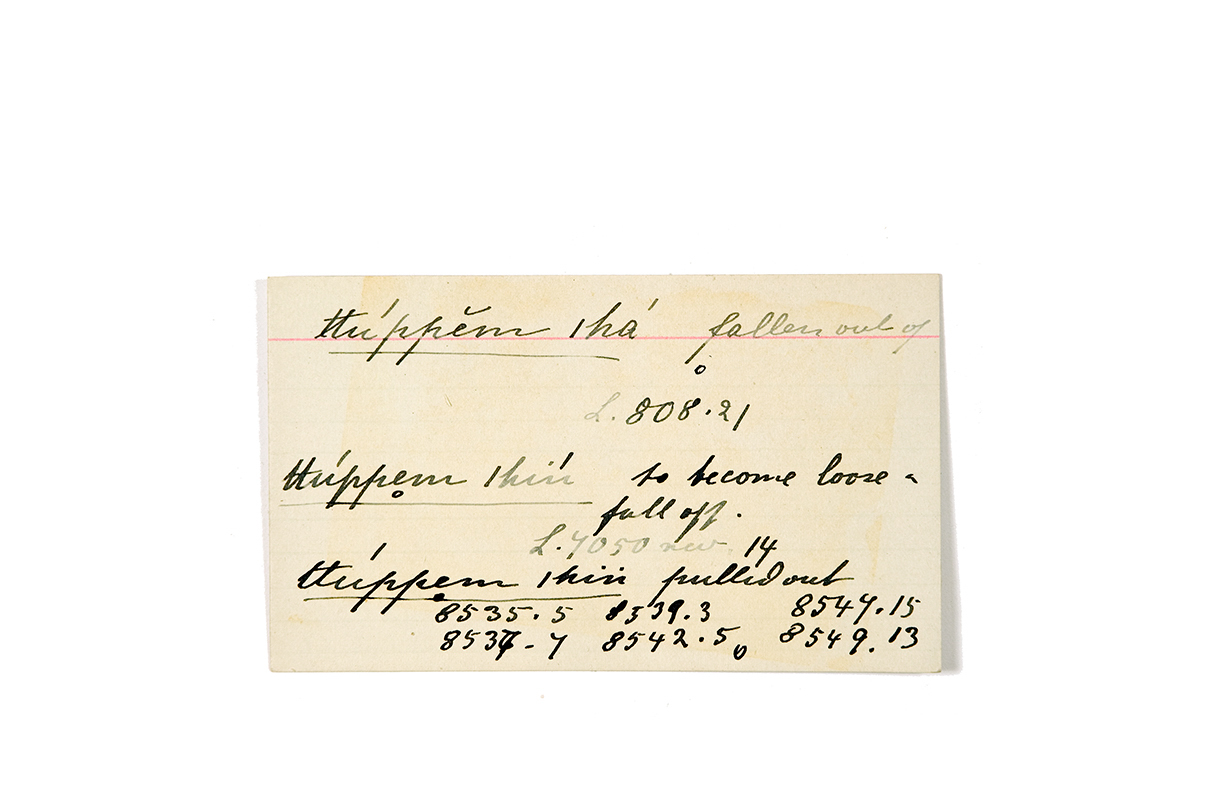 ttú́ppĕm |há fallen out of
L. 808.21
ttúppe̥m |hı́ı́ to become loose -
fall off.
L. 7050 rev. 14
ttúppe̥m |hı́ı́ pulled out
8535.5 8539.3 8547.15
8537.7 8542.5 8549.13